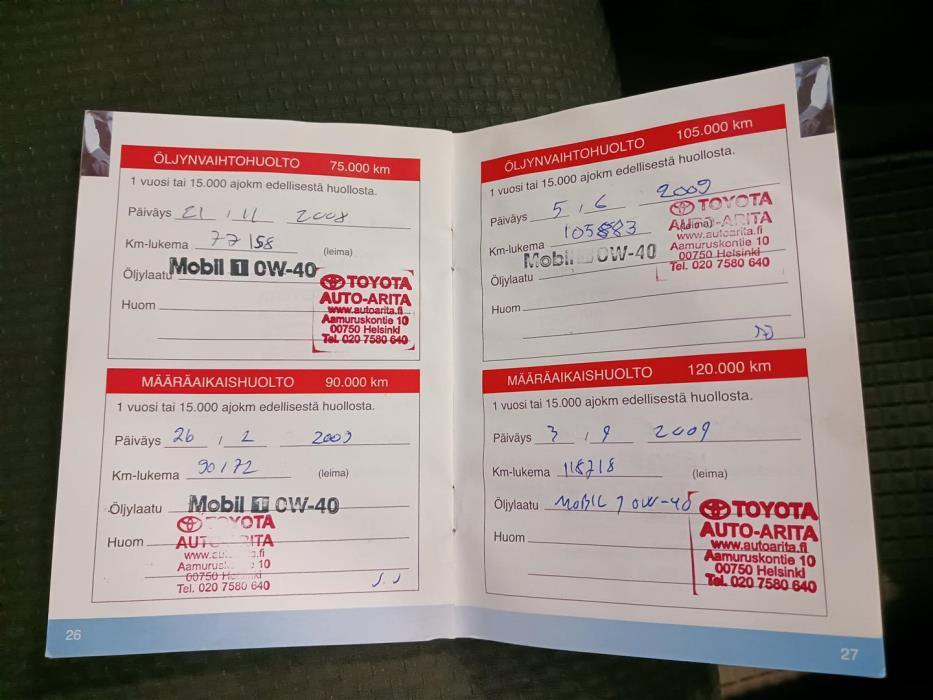 ÖLJYNVAIHTOHUOLTO 75.000 km
1 vuosi tai 15.000 ajokm edellisestä huollosta.
Päiväys 21 / 11 2008
Km-lukema 77158 (leima)
Öljylaatu Mobil 1 0W-40
TOYOTA
AUTO-ARITA
www.autoarita.fi
Aamuruskontie 10
00750 Helsinki
Tel. 020 7580 640
Huom
MÄÄRÄAIKAISHUOLTO 90.000 km
1 vuosi tai 15.000 ajokm edellisestä huollosta.
Päiväys 26 / 2 2009
Km-lukema 90172 (leima)
Öljylaatu Mobil 1 0W-40
TOYOTA
Huom
AUTO-ARITA
www.autoarita.fi
Aamuruskontie 10
00750 Helsinki
Tel. 020 7580 640
26
ÖLJYNVAIHTOHUOLTO 105.000 km
1 vuosi tai 15.000 ajokm edellisestä huollosta.
Päiväys 5 / 6 2009
Km-lukema 105883 (leima)
Öljylaatu Mobil 1 0W-40
TOYOTA
AUTO-ARITA
www.autoarita.fi
Aamuruskontie 10
00750 Helsinki
Tel. 020 7580 640
Huom
MÄÄRÄAIKAISHUOLTO 120.000 km
1 vuosi tai 15.000 ajokm edellisestä huollosta.
Päiväys 3 / 9 2009
Km-lukema 118718 (leima)
Öljylaatu MOBIL 1 0W-40
Huom
TOYOTA
AUTO-ARITA
www.autoarita.fi
Aamuruskontie 10
00750 Helsinki
Tel. 020 7580 640
27